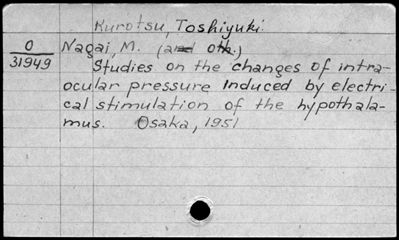 Kurotsu, Toshiyuki.
O Nagai, M. (and oth.)
31949 Studies on the changes of intra-
ocular pressure Induced by electri-
cal stimulation of the hypothala-
mus. Osaka, 1951